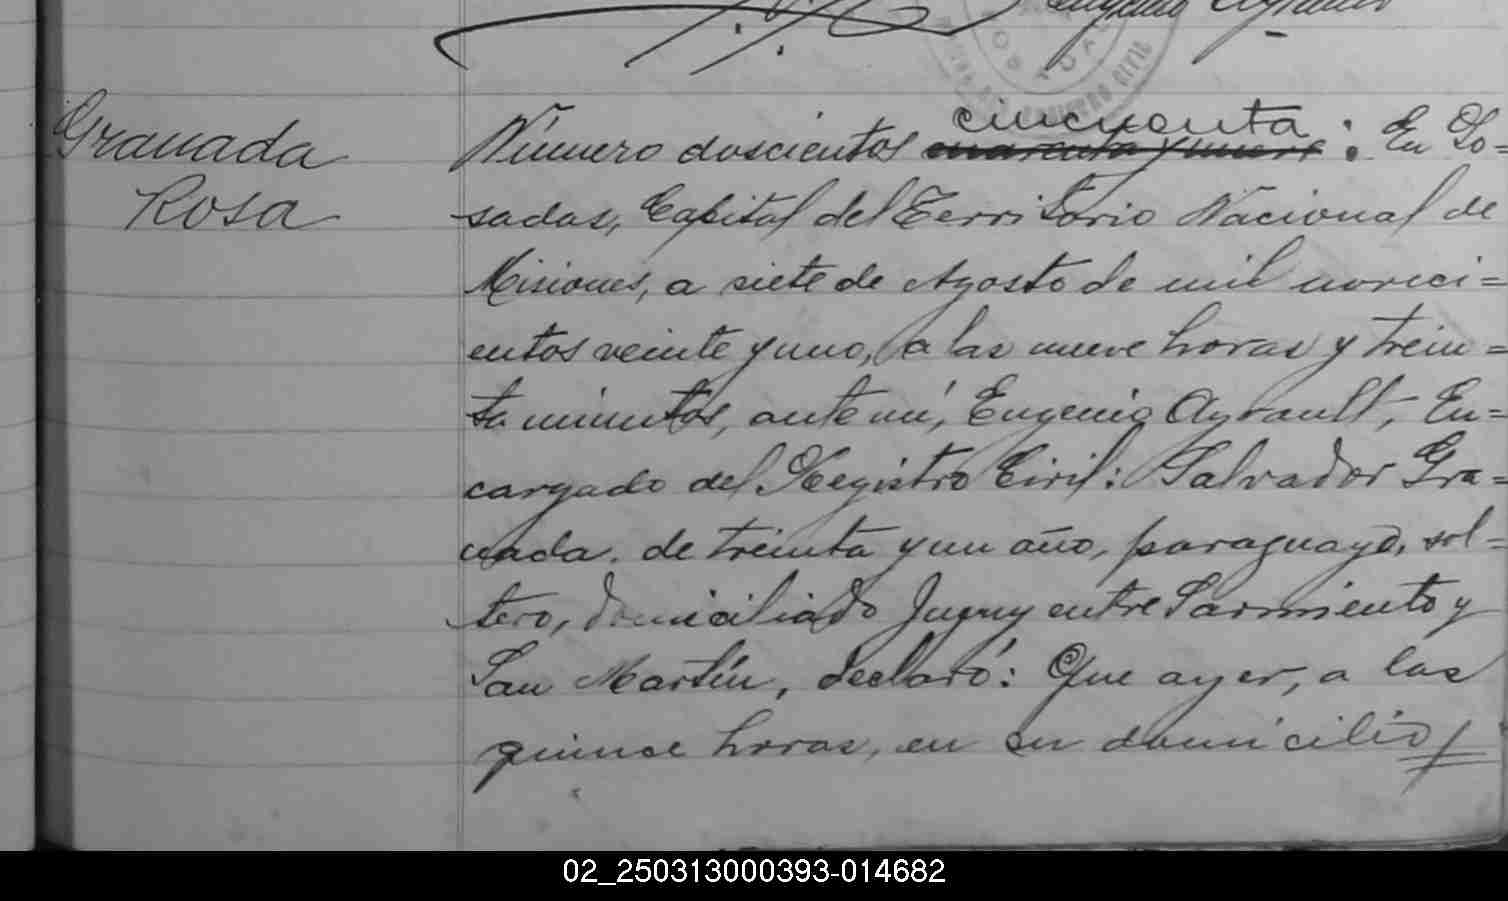 Eugenio Ayrault
Granada
Rosa
Número doscientos cuarenta y nueve cincuenta: En Po=
sadas, Capital del Territorio Nacional de
Misiones, a siete de Agosto de mil noveci=
entos veinte y uno, a las nueve horas y trein=
ta minutos, ante mí, Eugenio Ayrault, En=
cargado del Registro Civil: Salvador Gra=
nada. de treinta y un año, paraguayo, sol=
tero, domiciliado Jujuy entre Sarmiento y
San Martín, declaró: Que ayer, a las
quince horas, en su domicilio
02_250313000393-014682